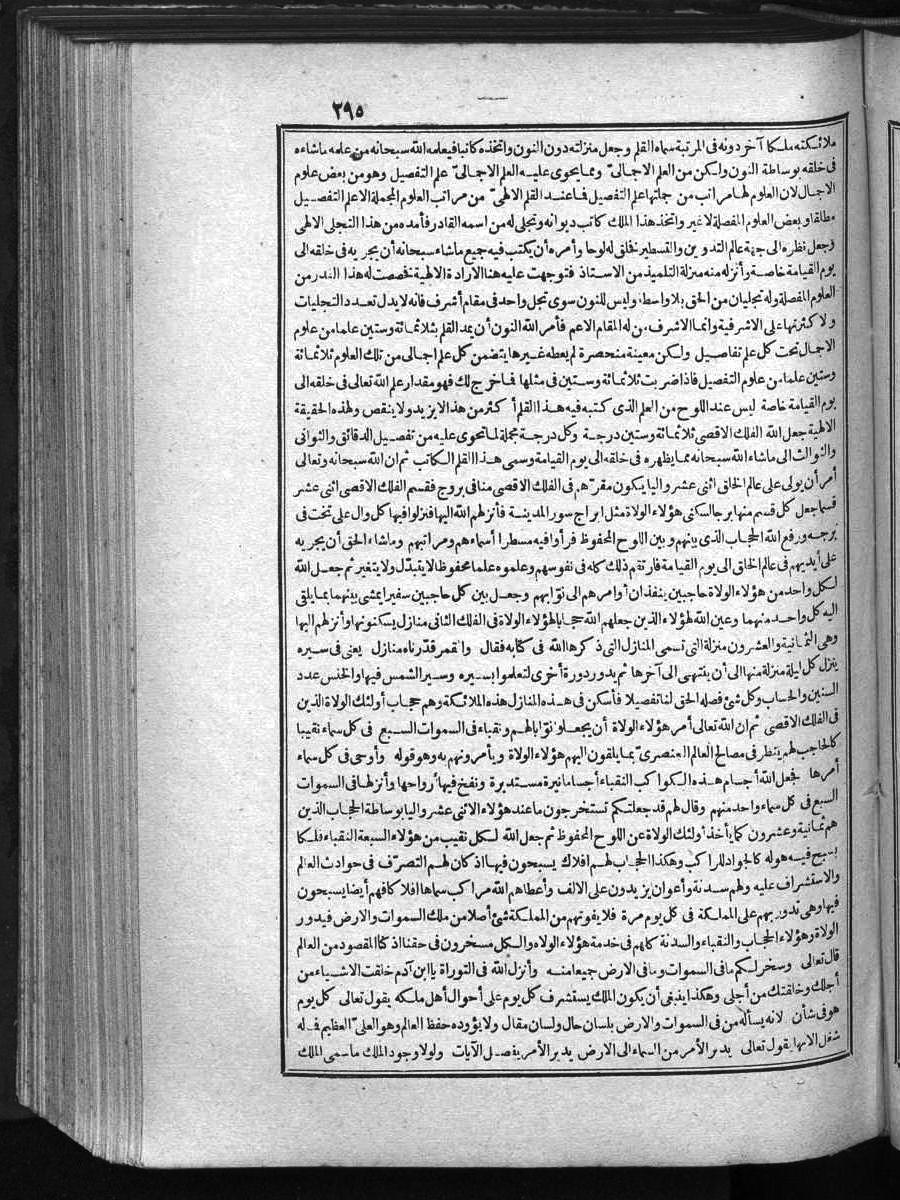 ٢٩٥
ملائكته ملكا آخر دونه فى المرتبة سماه القلم وجعل منزلته دون النون واتخذه كاتبا فيعلمه الله سبحانه من علمه ماشاءه
فى خلقه بوساطة النون ولكن من العلم الاجمالىّ ومما يحوى عليه العلم الاجمالىّ علم التفصيل وهو من بعض علوم
الاجمال لان العلوم لها مراتب من جملتها علم التفصيل فما عند القلم الالهىّ من مراتب العلوم المجملة الا علم التفصيل
مطلقا وبعض العلوم المفصلة لا غير واتخذ هذا الملك كاتب ديوانه وتجلى له من اسمه القادر فأمده من هذا التجلى الالهى
وجعل نظره الى جهة عالم التدوين والتسطير فخلق له لوحا وأمره أن يكتب فيه جميع ماشاء سبحانه أن يجريه فى خلقه الى
يوم القيامة خاصة وأنزله منه منزلة التلميذ من الاستاذ فتوجهت عليه هنا الارادة الالهية فخصصت له هذا القدر من
العلوم المفصلة وله تجليان من الحق بلا واسطة وليس للنون سوى تجل واحد فى مقام أشرف فانه لا يدل تعدد التجليات
ولا كثرتها على الاشرفية وانما الاشرف من له المقام الاعم فأمر الله النون أن يمد القلم بثلاثمائة وستين علما من علوم
الاجمال تحت كل علم تفاصيل ولكن معينة منحصرة لم يعطه غيرها يتضمن كل علم اجمالى من تلك العلوم ثلاثمائة
وستين علما من علوم التفصيل فاذا ضربت ثلاثمائة وستين فى مثلها فما خرج لك فهو مقدار علم الله تعالى فى خلقه الى
يوم القيامة خاصة ليس عند اللوح من العلم الذى كتبه فيه هذا القلم أكثر من هذا لا يزيد ولا ينقص ولهذه الحقيقة
الالهية جعل الله الفلك الاقصى ثلاثمائة وستين درجة وكل درجة مجملة لما تحوى عليه من تفصيل الدقائق والثوانى
والثوالث الى ماشاء الله سبحانه مما يظهره فى خلقه الى يوم القيامة وسمى هذا القلم الكاتب ثم ان الله سبحانه وتعالى
أمر أن يولى على عالم الخلق اثنى عشر واليا يكون مقرّهم فى الفلك الاقصى منا فى بروج فقسم الفلك الاقصى اثنى عشر
قسما جعل كل قسم منها برجا لسكنى هؤلاء الولاة مثل ابراج سور المدينة فأنزلهم الله اليها فنزلوا فيها كل وال على تخت فى
برجه ورفع الله الحجاب الذى بينهم وبين اللوح المحفوظ فرأوا فيه مسطرا أسماءهم ومراتبهم وماشاء الحق أن يجريه
على أيديهم فى عالم الخلق الى يوم القيامة فارتقم ذلك كله فى نفوسهم وعلموه علما محفوظا لا يتبدّل ولا يتغير ثم جعل الله
لكل واحد من هؤلاء الولاة حاجبين ينفذان أوامرهم الى نوّابهم وجعل بين كل حاجبين سفيرا يمشى بينهما بما يلقى
اليه كل واحد منهما وعين الله لهؤلاء الذين جعلهم الله حجابا لهؤلاء الولاة فى الفلك الثانى منازل يسكنونها وأنزلهم اليها
وهى الثمانية والعشرون منزلة التى تسمى المنازل التى ذكرها الله فى كتابه فقال والقمر قدّرناه منازل يعنى فى سيره
ينزل كل ليلة منزلة منها الى أن ينتهى الى آخرها ثم يدور دورة أخرى لتعلموا بسيره وسير الشمس فيها والخنس عدد
السنين والحساب وكل شئ فصله الحق لنا تفصيلا فأسكن فى هذه المنازل هذه الملائكة وهم حجاب أولئك الولاة الذين
فى الفلك الاقصى ثم ان الله تعالى أمر هؤلاء الولاة أن يجعلوا نوّابا لهم ونقباء فى السموات السبع فى كل سماء نقيبا
كالحاجب لهم ينظر فى مصالح العالم العنصرىّ بما يلقون اليهم هؤلاء الولاة ويأمرونهم به وهو قوله وأوحى فى كل سماء
أمرها فجعل الله أجسام هذه الكواكب النقباء أجساما نيرة مستديرة ونفخ فيها أرواحها وأنزلها فى السموات
السبع فى كل سماء واحد منهم وقال لهم قد جعلتكم تستخرجون ما عند هؤلاء الاثنى عشر واليا بوساطة الحجاب الذين
هم ثمانية وعشرون كما يأخذ أولئك الولاة عن اللوح المحفوظ ثم جعل الله لكل نقيب من هؤلاء السبعة النقباء فلكا
يسبح فيه هوله كالجواد للراكب وهكذا الحجاب لهم افلاك يسبحون فيها اذ كان لهم التصرّف فى حوادث العالم
والاستشراف عليه ولهم سدنة وأعوان يزيدون على الالف وأعطاهم الله مراكب سماها افلاكا فهم أيضا يسبحون
فيها وهى تدور بهم على المملكة فى كل يوم مرة فلا يفوتهم من المملكة شئ أصلا من ملك السموات والارض فيدور
الولاة وهؤلاء الحجاب والنقباء والسدنة كلهم فى خدمة هؤلاء الولاه والكل مسخرون فى حقنا اذ كنا المقصود من العالم
قال تعالى وسخر لكم ما فى السموات وما فى الارض جميعا منه وأنزل الله فى التوراة يا ابن آدم خلقت الاشياء من
أجلك وخلقتك من أجلى وهكذا ينبغى أن يكون الملك يستشرف كل يوم على أحوال أهل ملكه يقول تعالى كل يوم
هو فى شأن لانه يسأله من فى السموات والارض بلسان حال ولسان مقال ولا يؤوده حفظ العالم وهو العلىّ العظيم فما له
شغل الا بها يقول تعالى يدبر الأمر من السماء الى الارض يدبر الأمر يفصل الآيات ولولا وجود الملك ما سمى الملك